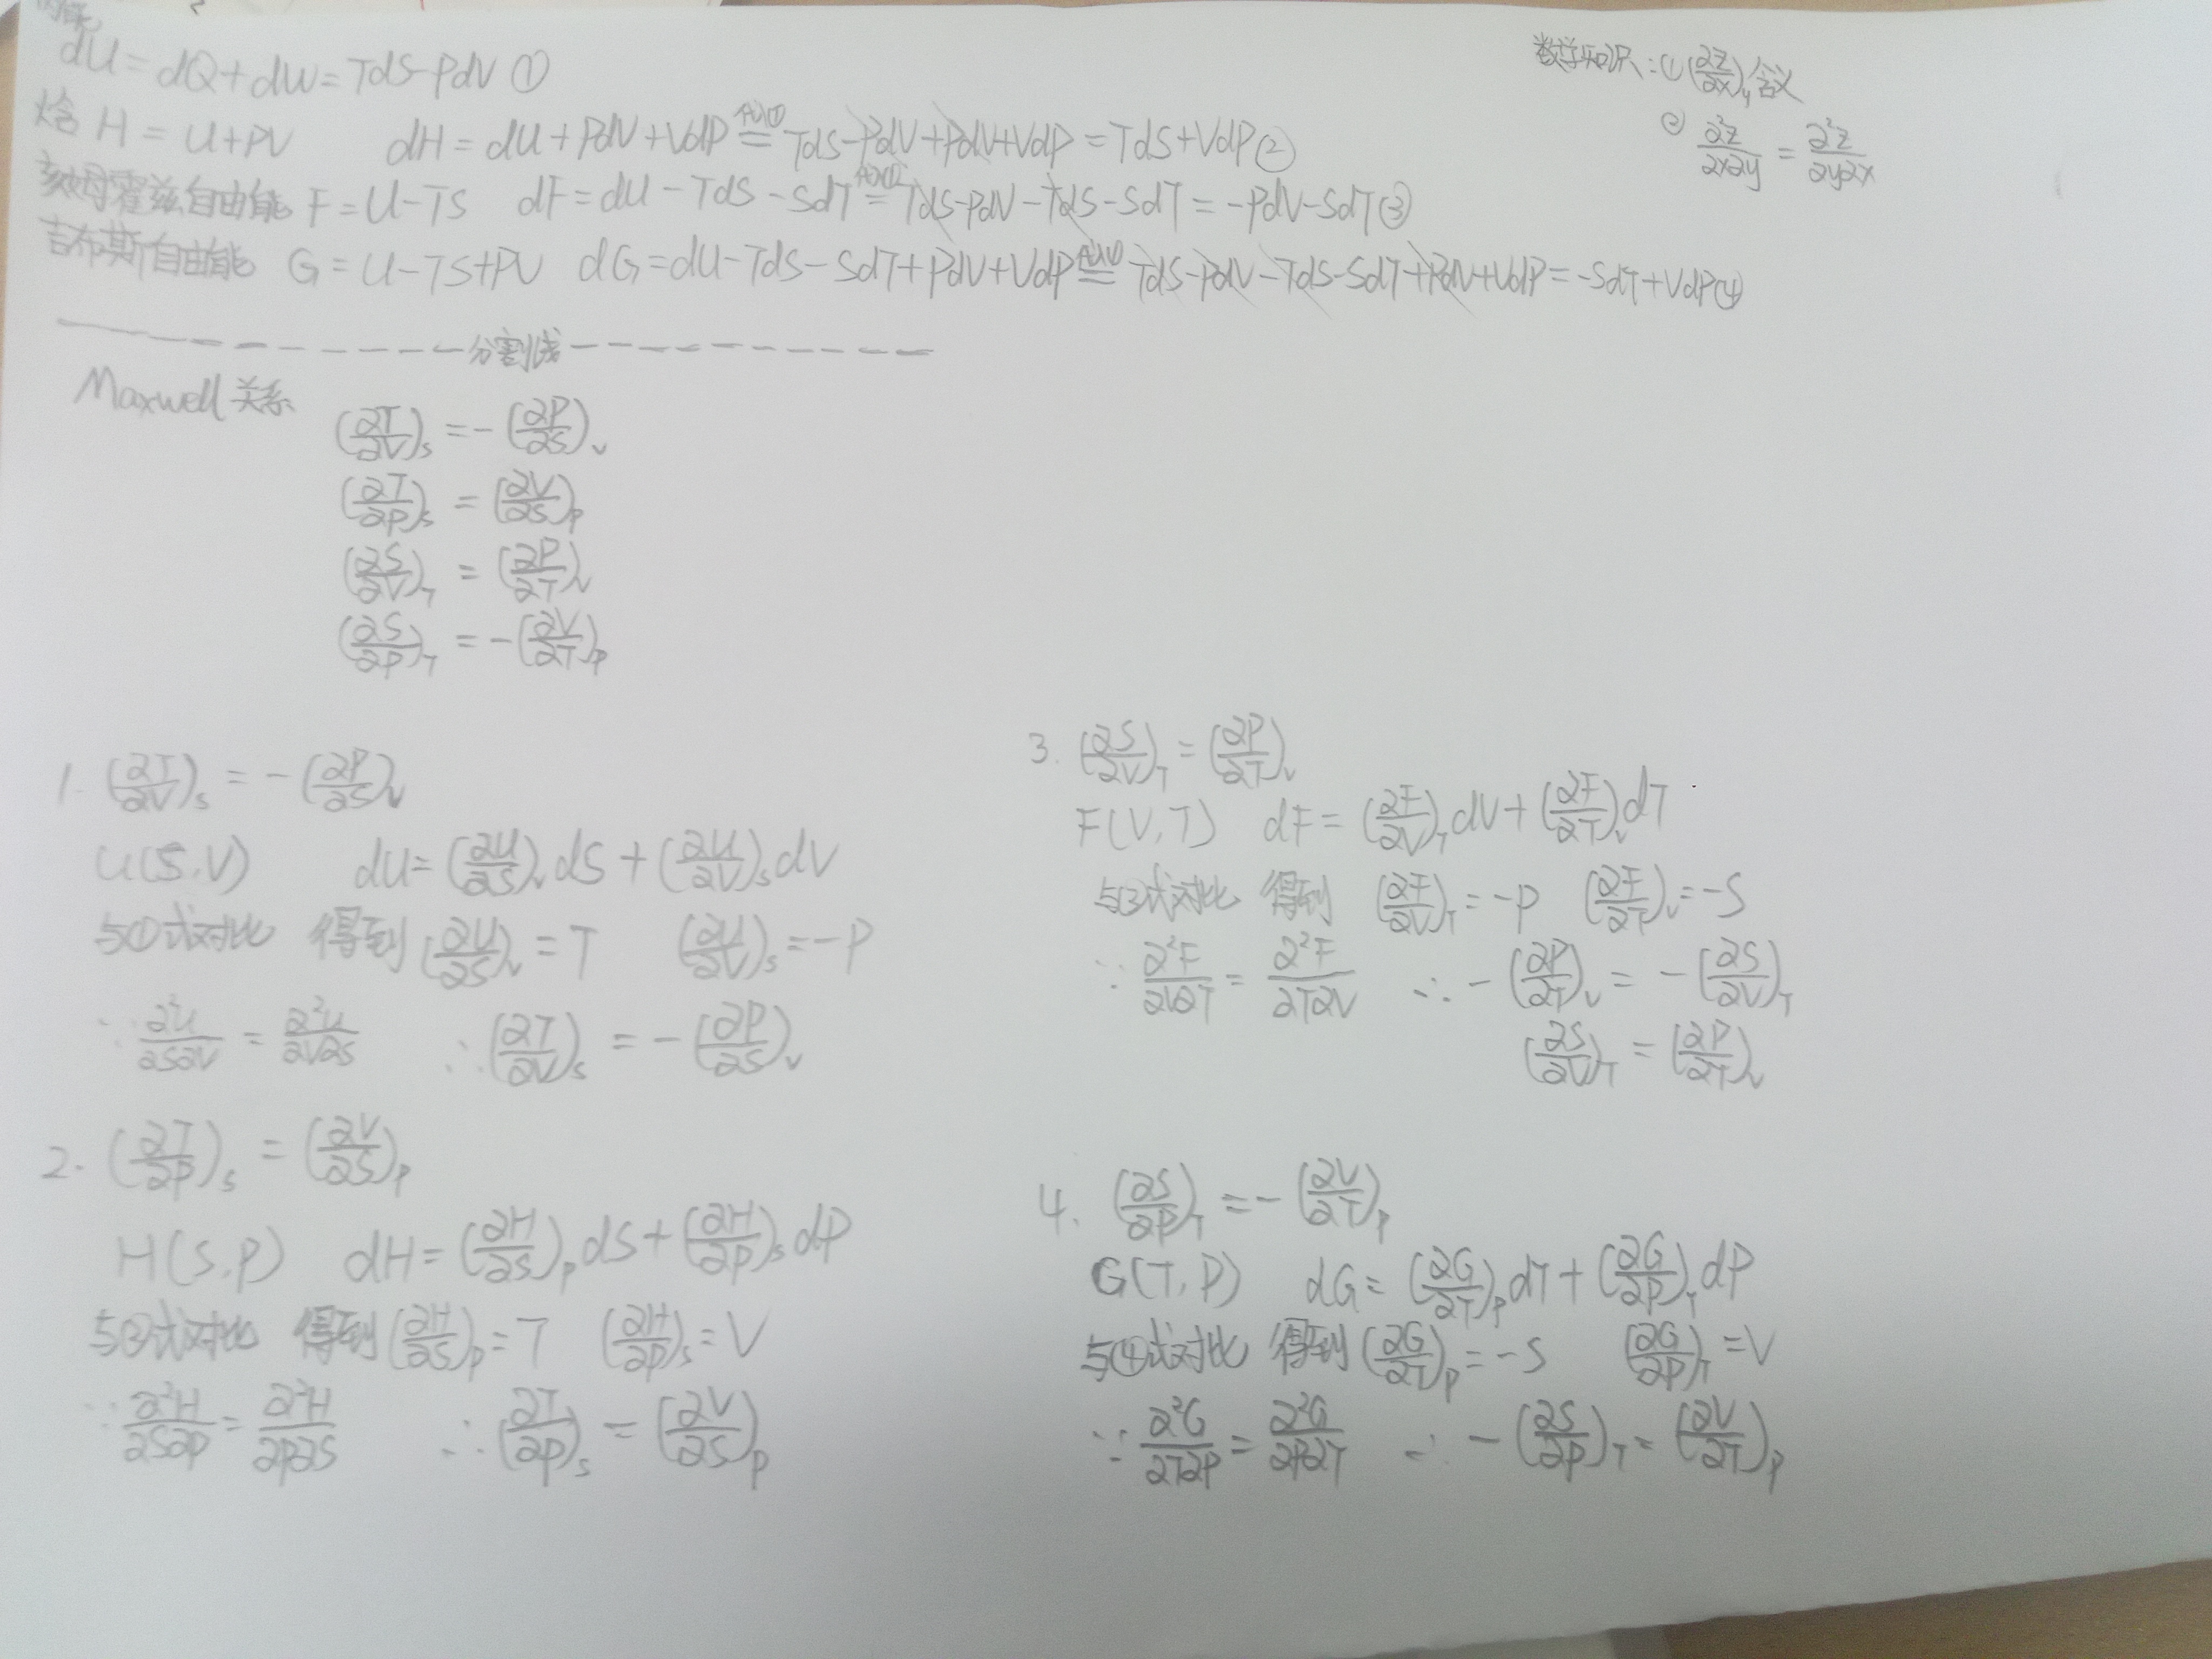 内能
dU = dQ + dW = TdS - PdV ①
焓 H = U + PV dH = dU + PdV + VdP = TdS - PdV + PdV + VdP = TdS + VdP ②
亥姆霍兹自由能 F = U - TS dF = dU - TdS - SdT = TdS - PdV - TdS - SdT = -PdV - SdT ③
吉布斯自由能 G = U - TS + PV dG = dU - TdS - SdT + PdV + VdP = TdS - PdV - TdS - SdT + PdV + VdP = -SdT + VdP ④
数学知识: ① (∂Z/∂x)_y 含义
② ∂²Z/∂x∂y = ∂²Z/∂y∂x
分割线
Maxwell 关系
(∂T/∂V)_S = -(∂P/∂S)_V
(∂T/∂P)_S = (∂V/∂S)_P
(∂S/∂V)_T = (∂P/∂T)_V
(∂S/∂P)_T = -(∂V/∂T)_P
1. (∂T/∂V)_S = -(∂P/∂S)_V
U(S,V) dU = (∂U/∂S)_V dS + (∂U/∂V)_S dV
与①式对比 得到 (∂U/∂S)_V = T (∂U/∂V)_S = -P
∵ ∂²U/∂S∂V = ∂²U/∂V∂S ∴ (∂T/∂V)_S = -(∂P/∂S)_V
2. (∂T/∂P)_S = (∂V/∂S)_P
H(S,P) dH = (∂H/∂S)_P dS + (∂H/∂P)_S dP
与②式对比 得到 (∂H/∂S)_P = T (∂H/∂P)_S = V
∵ ∂²H/∂S∂P = ∂²H/∂P∂S ∴ (∂T/∂P)_S = (∂V/∂S)_P
3. (∂S/∂V)_T = (∂P/∂T)_V
F(V,T) dF = (∂F/∂V)_T dV + (∂F/∂T)_V dT
与③式对比 得到 (∂F/∂V)_T = -P (∂F/∂T)_V = -S
∵ ∂²F/∂V∂T = ∂²F/∂T∂V ∴ -(∂P/∂T)_V = -(∂S/∂V)_T
(∂S/∂V)_T = (∂P/∂T)_V
4. (∂S/∂P)_T = -(∂V/∂T)_P
G(T,P) dG = (∂G/∂T)_P dT + (∂G/∂P)_T dP
与④式对比 得到 (∂G/∂T)_P = -S (∂G/∂P)_T = V
∵ ∂²G/∂T∂P = ∂²G/∂P∂T ∴ -(∂S/∂P)_T = (∂V/∂T)_P